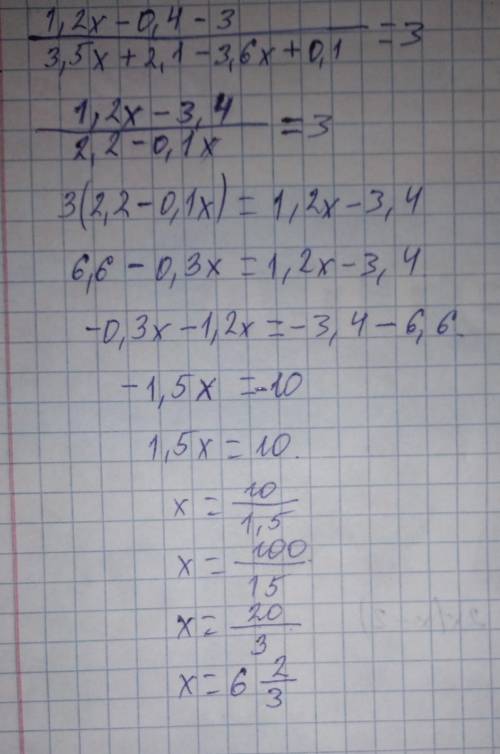 1,2x-0,4-3
3,5x+2,1-3,6x+0,1 =3
1,2x-3,4
2,2-0,1x =3
3(2,2-0,1x)=1,2x-3,4
6,6-0,3x=1,2x-3,4
-0,3x-1,2x=-3,4-6,6.
-1,5x=-10
1,5x=10.
x=10/1,5
x=100/15
x=20/3.
x=6 2/3